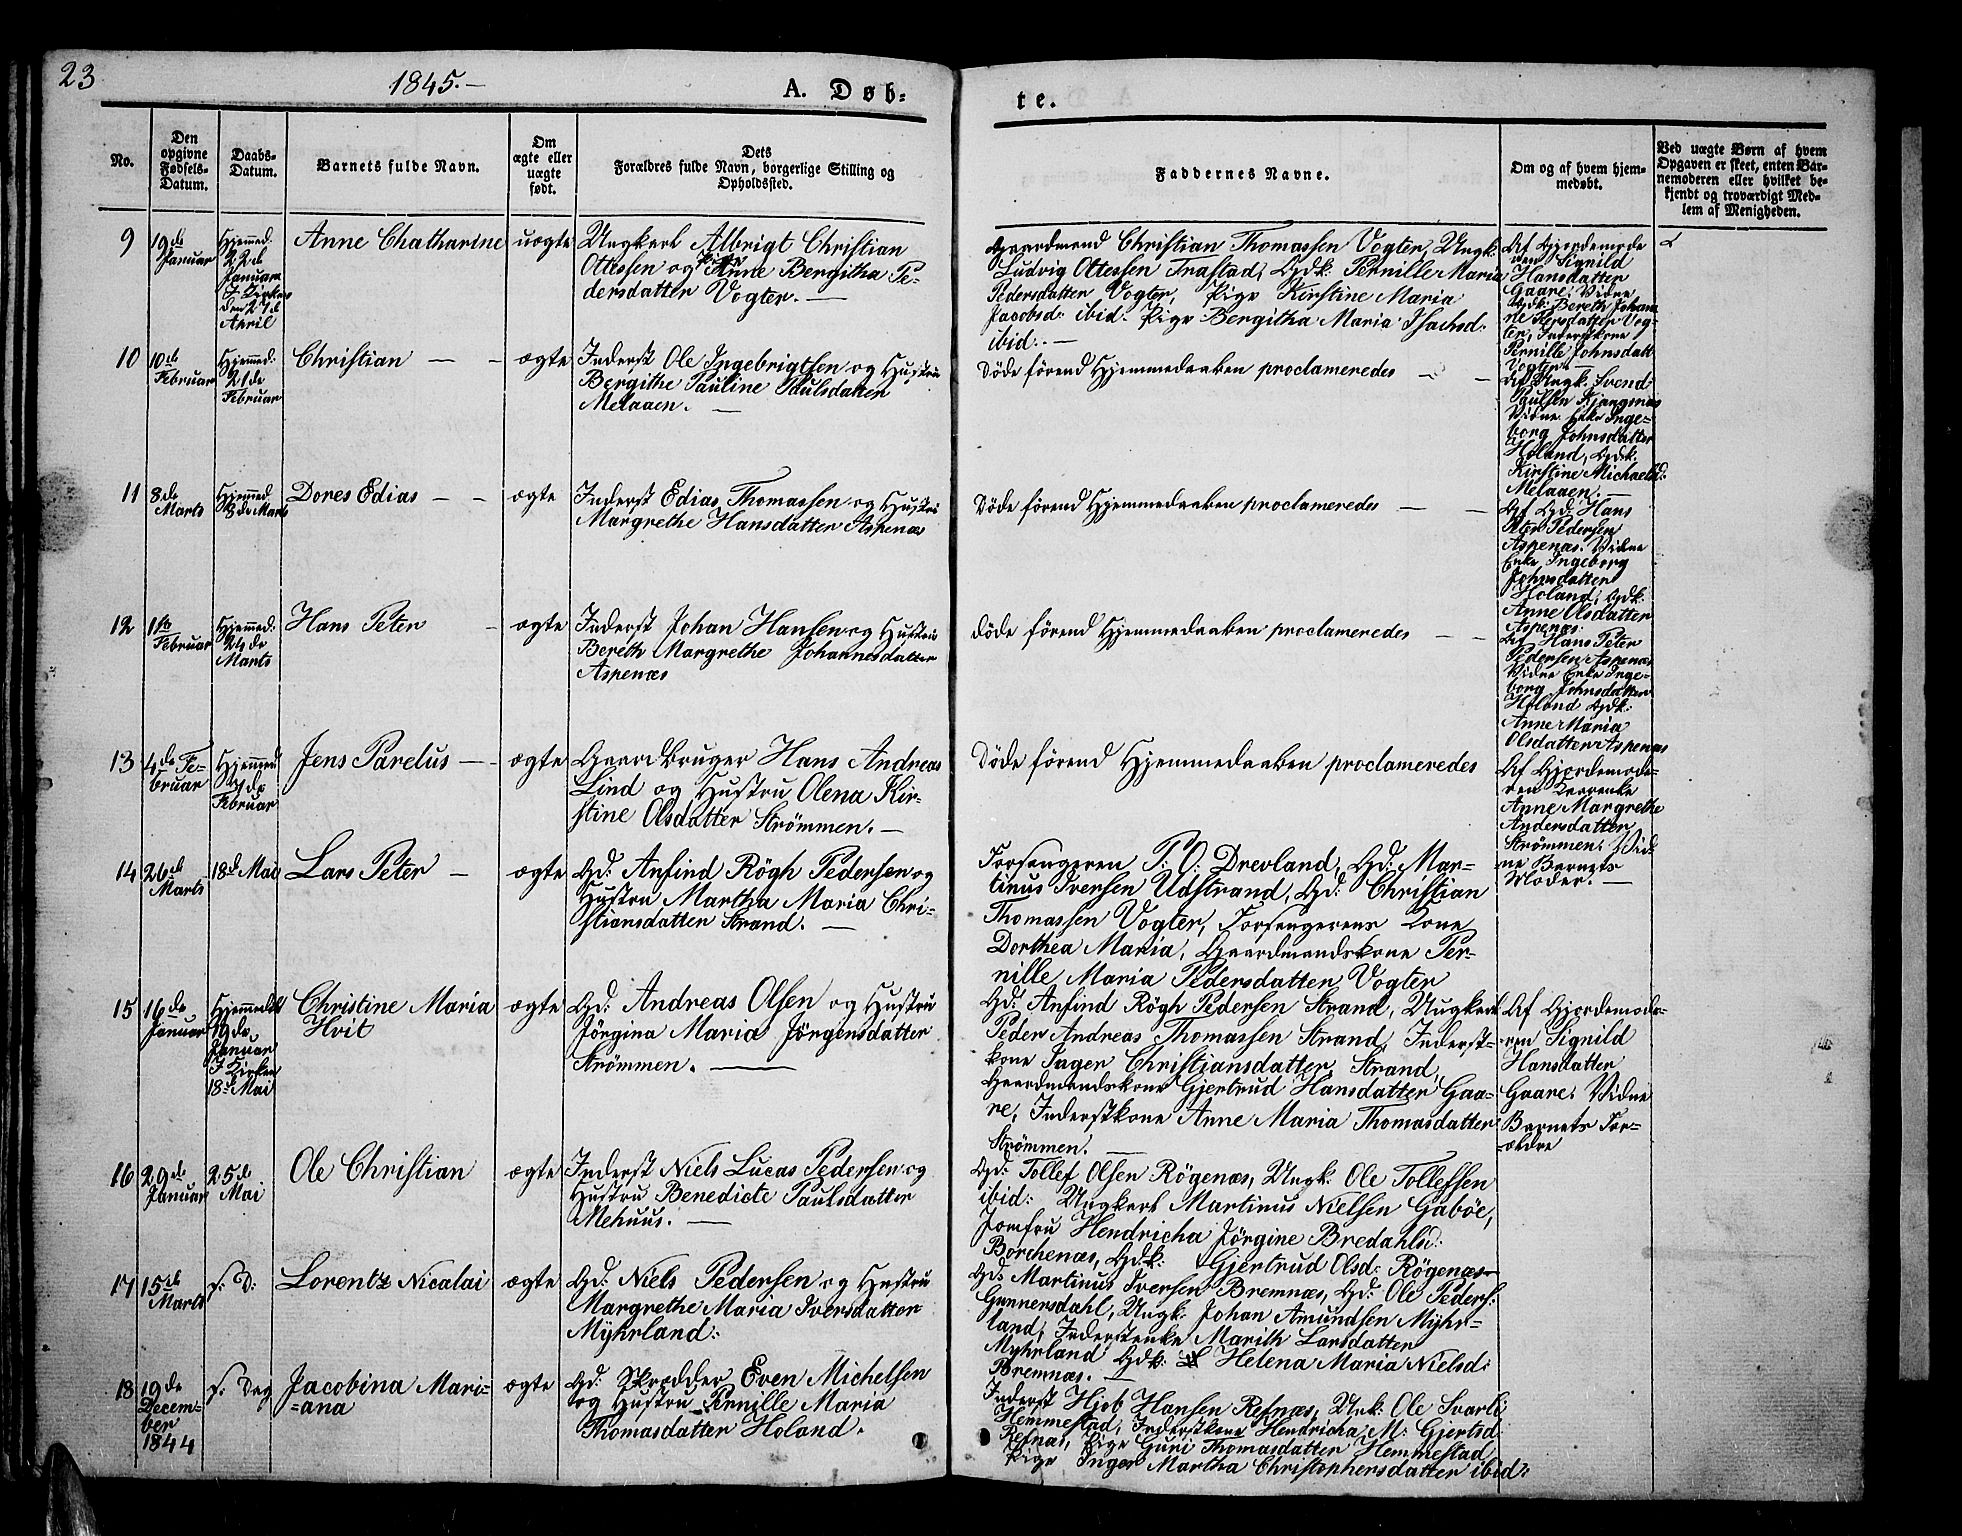 23
1845.–
A. Døb-
te.
No.
Den
opgivne
Fødsels-
Datum.
Daabs-
Datum.
Barnets fulde Navn.
Om
ægte eller
uægte
født.
Dets
Forældres fulde Navn, borgerlige Stilling og
Opholdssted.
Faddernes Navne.
Om og af hvem hjem-
medøbt.
Ved uægte Børn af hvem
Opgaven er skeet, enten Bar-
nemoderen eller hvilket be-
kjendt og troværdigt Med-
lem af Menigheden.
9
19de
Januar
Hjemmed:
22de
Januar
I Kirken
den 27de
April
Anne Chatharine
uægte
Ungkarl Albrigt Christian
Ottessen og Pige Anne Bergitha Pe-
dersdatter Vogter. —
Gaardmand Christian Thomassen Vogter, Ungk:
Ludvig Ottessen Frastad, Gdk: Pernille Maria
Pedersdatter Vogter, Pige Kirstine Maria
Jacobsd: ibid. Pige Bergitha Maria Isachsd:
ibid:. —
Af Gjordemode
ren Signild
Hansdatter
Gaare: Vidne
Gdk: Bereth Johan
ne Persdatter Vog-
ter, Inderstkone
Pernille Johnsdatt
Vogter. —
10
10de
Februar
Hjemmed:
21de
Februar
Christian — –
ægte
Inderst Ole Ingebrigtsen og Hustru
Bergithe Pauline Paulsdatter
Melaaen. —
Døde førend Hjemmedaaben proclameredes — –
Af Ungk: Svend
Paulsen Kjangsnæs
Vidne Enke Inge-
borg Johnsdatter
Holand, Gdk:
Kirstine Michaelsd:
Melaaen. —
11
8de
Marts
Hjemmed
8de Marts
Dores Edias – –
ægte
Inderst Edias Thomassen og Hustru
Margrethe Hansdatter Aspenæs
Døde førend Hjemmedaaben proclameredes — –
Af Gd: Hans
Peter Pedersen
Aspenæs. Vidne
Enke Ingeborg
Johnsdatter
Holand, Gdk:
Anne Olsdatter
Aspenæs.
12
1ste
Februar
Hjemmed:
24de
Marts
Hans Peter –
ægte
Inderst Johan Hansen og Hustru
Bereth Margrethe Johannesdatter
Aspenæs
døde førend Hjemmedaaben proclameredes – –
Af Hans Peter
Pedersen Aspenæs
Vidne Enke Inge-
borg Johnsdatter
Holand Gdk:
Anne Maria
Olsdatter Aspenæs
13
4de Fe-
bruar
Hjemmed
7de
Februar
Jens Parelus – –
ægte
Gaardbruger Hans Andreas
Lind og Hustru Olena Kir-
stine Olsdatter Strømmen. —
Døde førend Hjemmedaaben proclameredes
Af Gjordemode-
ren
Anne Margrethe
Andersdatter
Strømmen. Vid-
ne Barnets
Moder. —
14
26de
Marts
18de Mai
Lars Peter –
ægte
Gd: Anfind Rögh Pedersen og
Hustru Martha Maria Chri-
stiansdatter Strand. —
Forsangeren P: O: Drevland, Gd: Mar-
tinus Iversen Udstrand, Gd: Christian
Thomassen Vogter, Forsangerens Kone
Dorthea Maria, Gaardmandskone Per-
nille Maria Pedersdatter Vogter
15
16de
Januar
Hjemmedøbt
19de
Januar
I Kirken
18de Mai
Christine Maria
Hvit
ægte
Gd: Andreas Olsen og Hustru
Jørgina Maria Jørgensdatter
Strømmen. —
Gd: Anfind Rögh Pedersen Strand, Ungkarl
Peder Andreas Thomassen Strand, Inderst-
kone Inger Christiansdatter Strand,
Gaardmandskone Gjertrud Hansdatter Gaa-
re, Inderstkone Anne Maria Thomasdatter
Strømmen. —
Af Gjordemode-
ren Signild
Hansdatter
Gaare. Vidne
Barnets For-
ældre
16
29de
Januar
25de
Mai
Ole Christian
ægte
Inderst Niels Lucas Pedersen og
Hustru Benedicte Paulsdatter
Mehuus. —
Gd: Tollef Olsen Rögenæs, Ungk: Ole Tollefsen
ibid: Ungkarl Martinus Nielsen Gabøe,
Jomfru Hendricha Jørgine Bredahls:
Borchenæs, Gdk: Gjertrud Olsd: Rögenæs
17
15de
Marts
s: D:
Lorentz Nicalai
ægte
Gd: Niels Pedersen og Hustru
Margrethe Maria Iversdatter
Myhrland:
Gd: Martinus Iversen Bremnæs, Gd: Ole Peders:
Gunnersdahl, Ungk: Johan Amundsen Myhr-
land, Inderstenke Marith Larsdatter
Myhrland Gdk: Helena Maria Nielsd:
Bremnæs. —
18
19de
Decem-
ber
1844
s: Dag
Jacobina Mari-
=ana
ægte
Gd: Skrædder Even Michelsen
og Hustru Pernille Maria
Thomasdatter Holand.
Inderst Hjob Hansen Refnæs, Unk: Ole Svartl
Hemmestad, Inderstkone Hendricha M: Gjertsd
Refnæs, Pige Guri Thomasdatter Hemmestad
Pige Inger Martha Christophersdatter ibid: